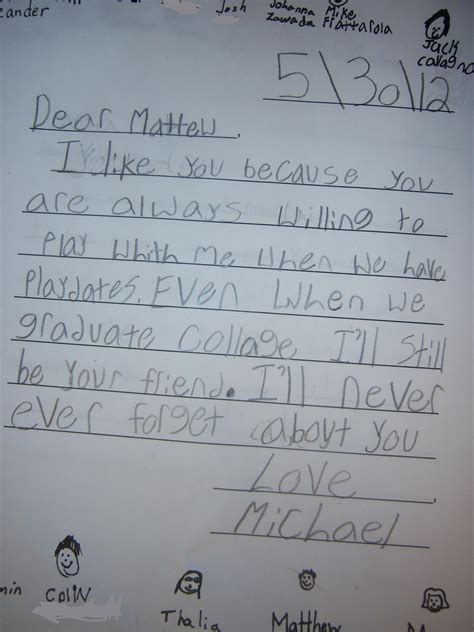 eander Josh Johanna Mike
Zawada Frattarola
Jack
calagno
5\30\12
Dear Mattew,
I like you because you
are always willing to
play whith me when we have
playdates. Even when we
graduate collage, I'll still
be your friend. I'll never
ever forget about you
Love,
Michael
min Colin Thalia Matthew